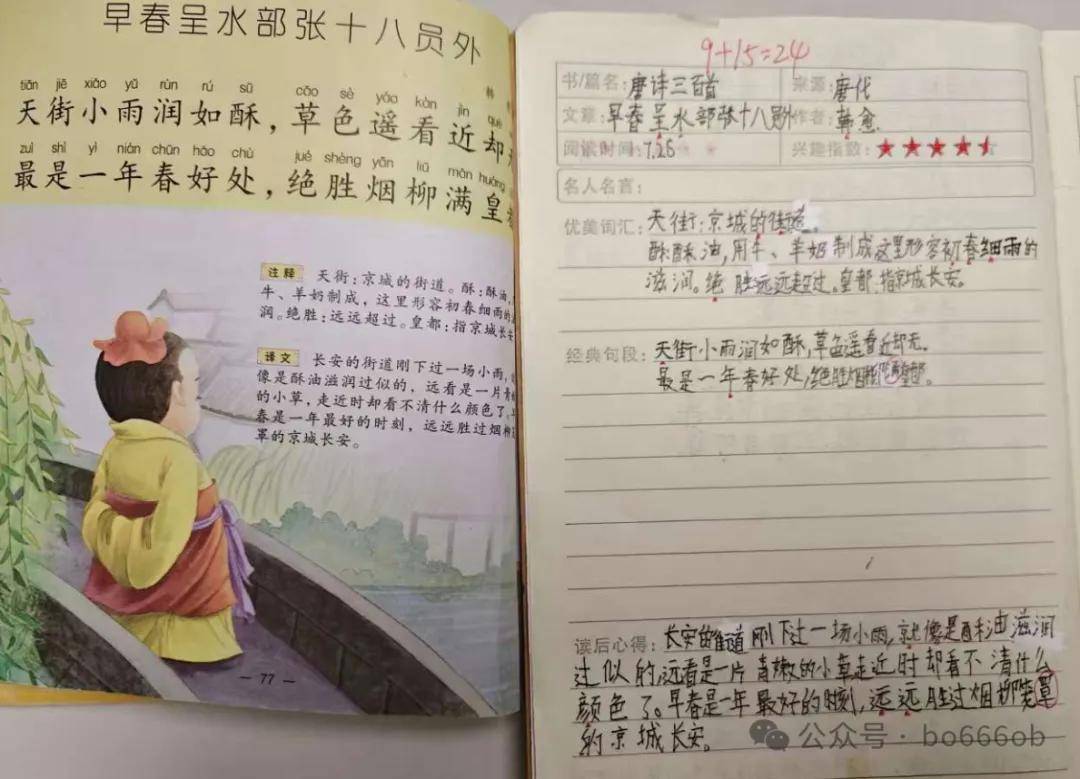 早春呈水部张十八员外
tiān jiē xiǎo yǔ rùn rú sū cǎo sè yáo kàn jìn què
天街小雨润如酥，草色遥看近却
zuì shì yì nián chūn hǎo chù jué shèng yān liǔ mǎn huáng
最是一年春好处，绝胜烟柳满皇
注释 天街：京城的街道。酥：酥油，
牛、羊奶制成，这里形容初春细雨的
润。绝胜：远远超过。皇都：指京城长安
译文 长安的街道刚下过一场小雨，
像是酥油滋润过似的，远看是一片青
的小草，走近时却看不清什么颜色了。
春是一年最好的时刻，远远胜过烟柳
罩的京城长安。
— 77 —
9+15=24
书/篇名：唐诗三百首 来源：唐代
文章：早春呈水部张十八员外 作者：韩愈
阅读时间：7.26 兴趣指数：★★★★
名人名言：
优美词汇：天街：京城的街道。
酥：酥油，用牛、羊奶制成这里形容初春细雨的
滋润。绝胜远远超过。皇都：指京城长安。
经典句段：天街小雨润如酥，草色遥看近却无。
最是一年春好处，绝胜烟柳满皇都。
读后心得：长安的街道刚下过一场小雨，就像是酥油滋润
过似的，远看是一片青嫩的小草走近时却看不清什么
颜色了。早春是一年最好的时刻，远远胜过烟柳笼罩
的京城长安。
公众号 · bo666ob